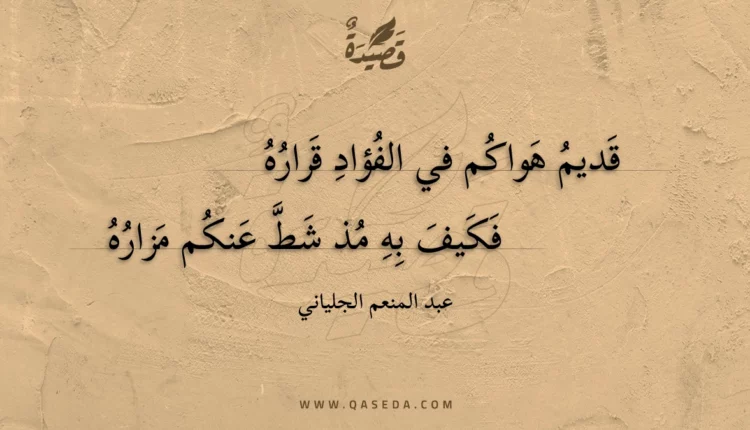 قَصِيْدَةٌ
قَديمُ هَواكُم في الفُؤادِ قَرارُهُ
فَكَيفَ بِهِ مُذ شَطَّ عَنكُم مَزارُهُ
عبد المنعم الجلياني
WWW.QASEDA.COM